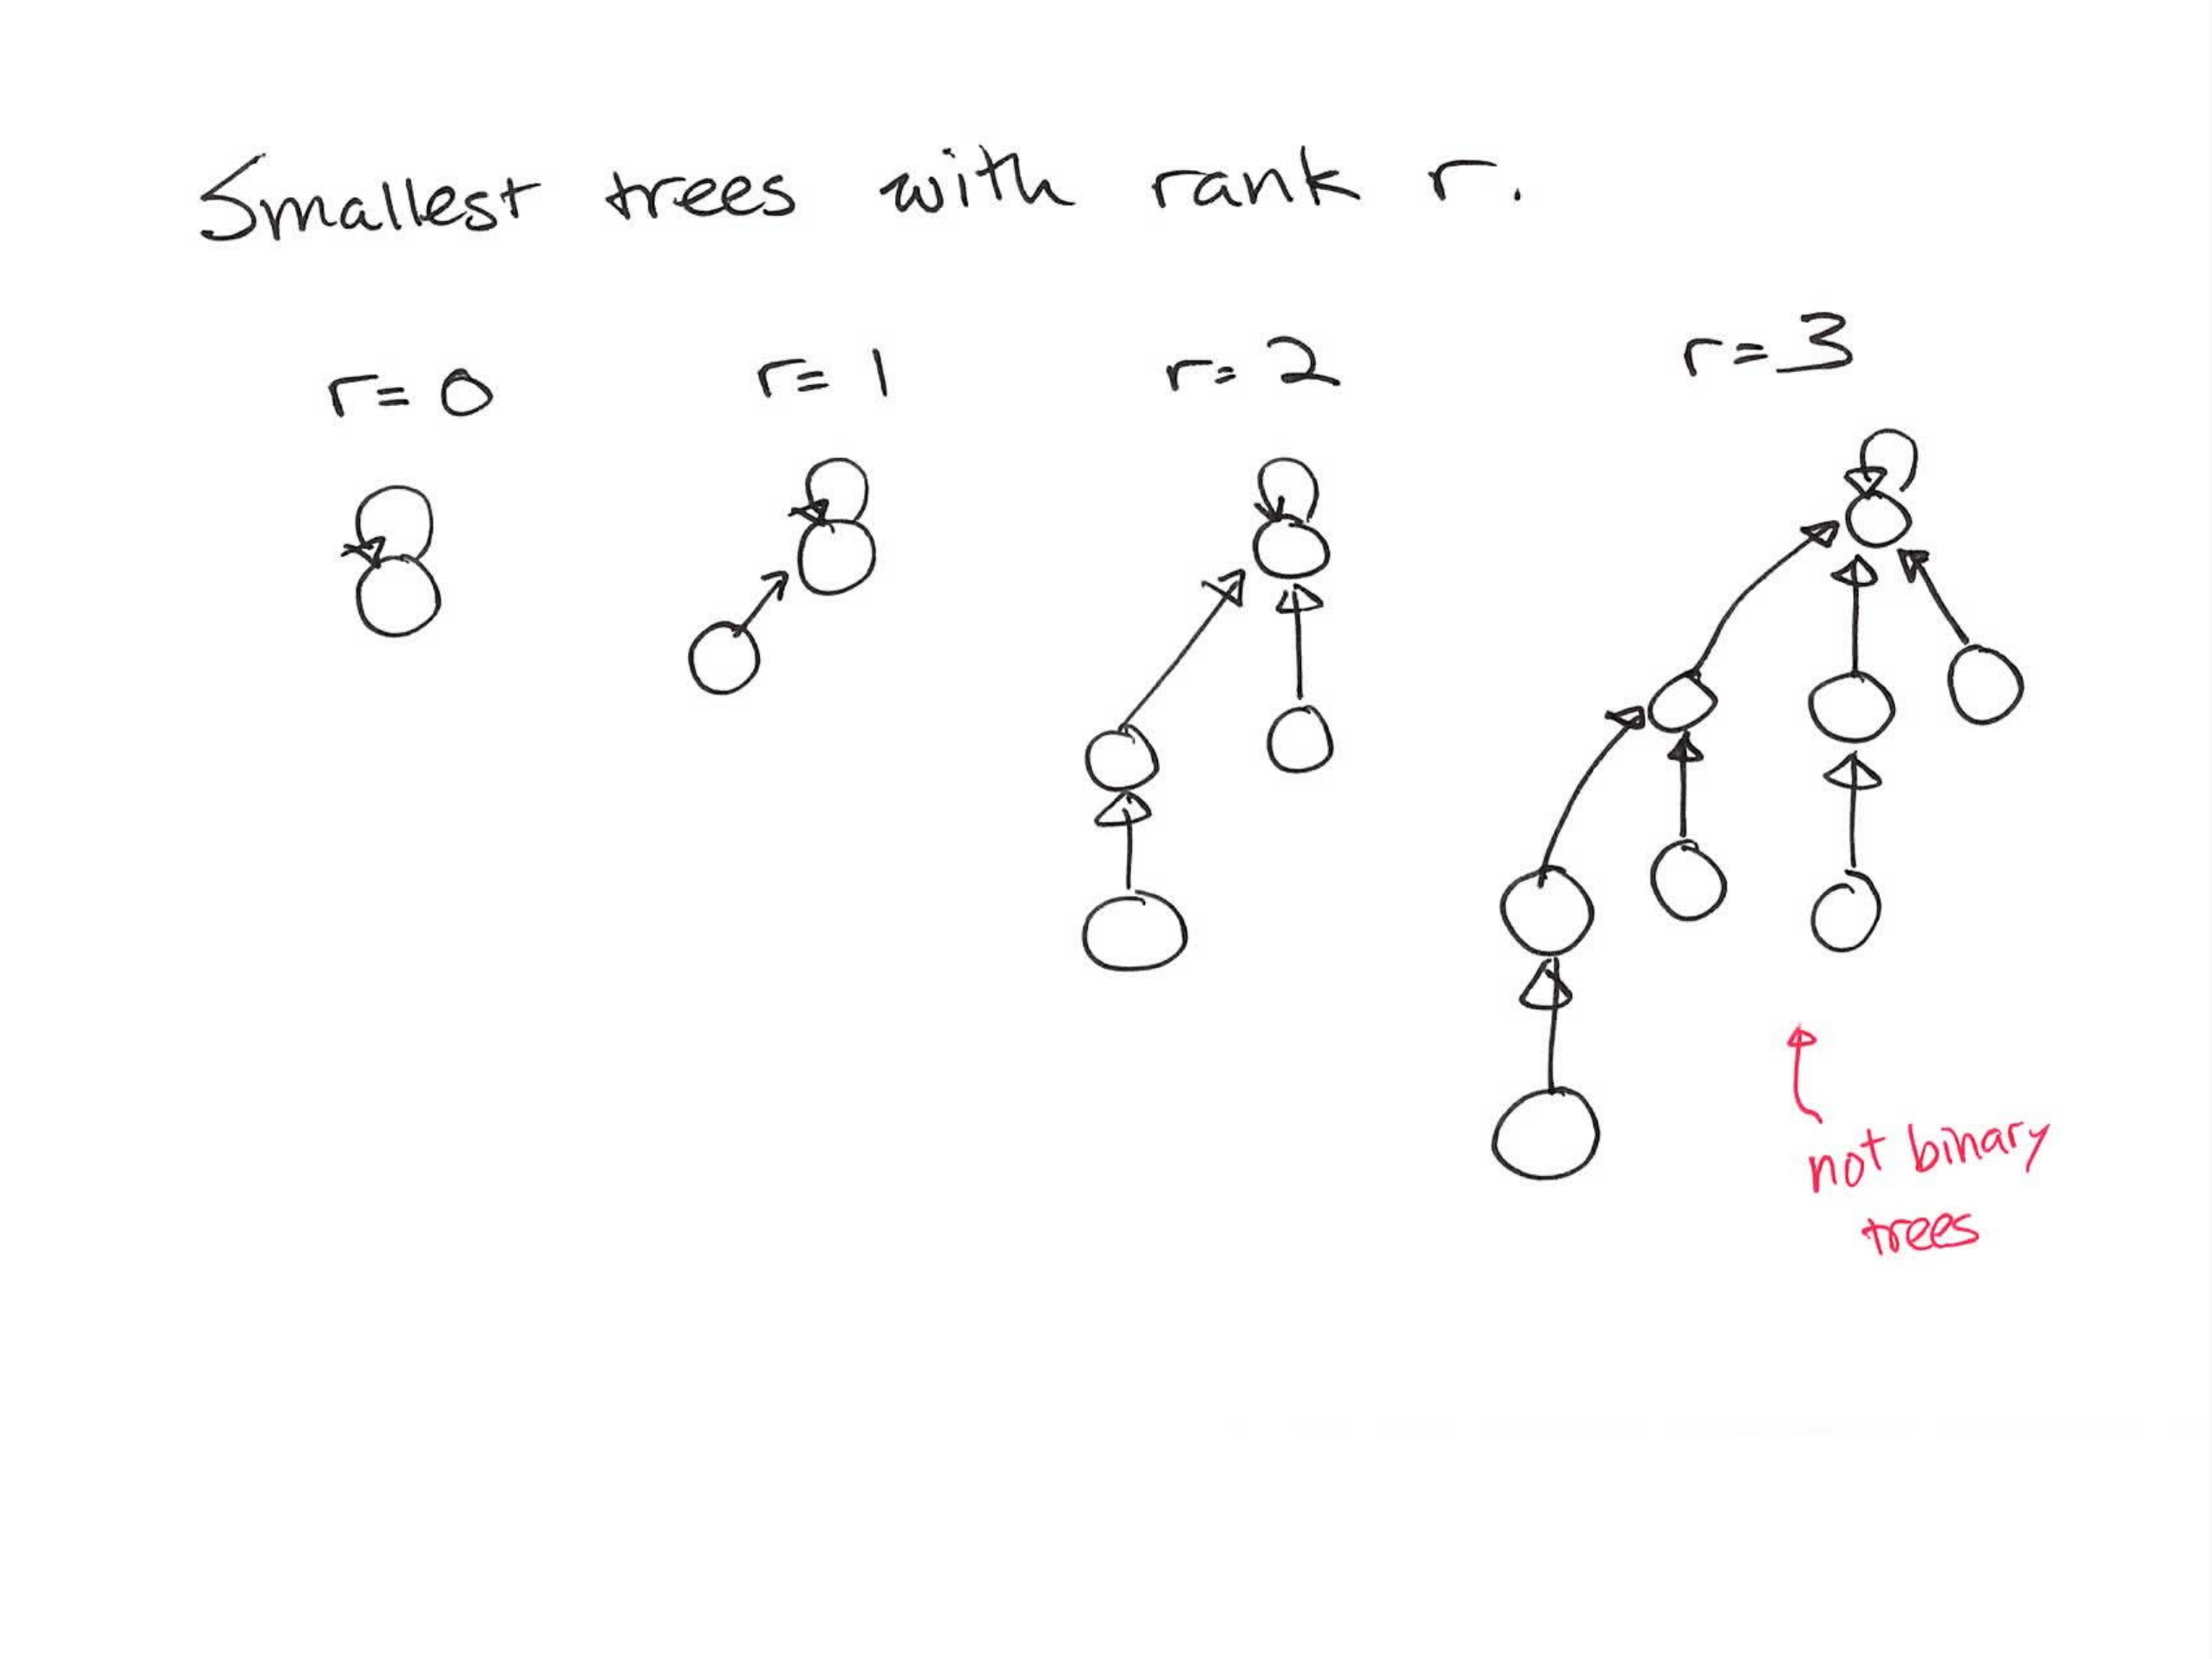 Smallest trees with rank r.
r=0 r=1 r=2 r=3
not binary
trees